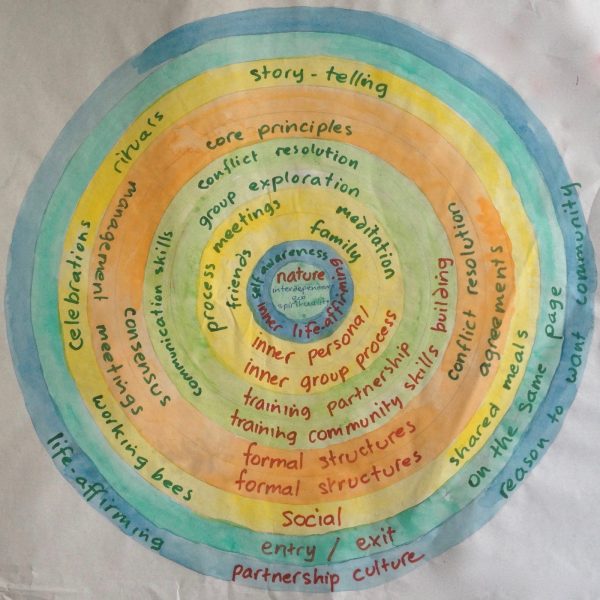 story-telling
rituals
celebrations
core principles
management meetings
consensus
conflict resolution
group exploration
communication skills
process meetings
friends
family
meditation
self awareness
nature
interdependency
eco
spirituality
inner life-affirming
inner personal
inner group process
training partnership
training community skills building
conflict resolution
agreements
formal structures
formal structures
shared meals
working bees
social
on the same page
entry / exit
reason to want community
life-affirming
partnership culture